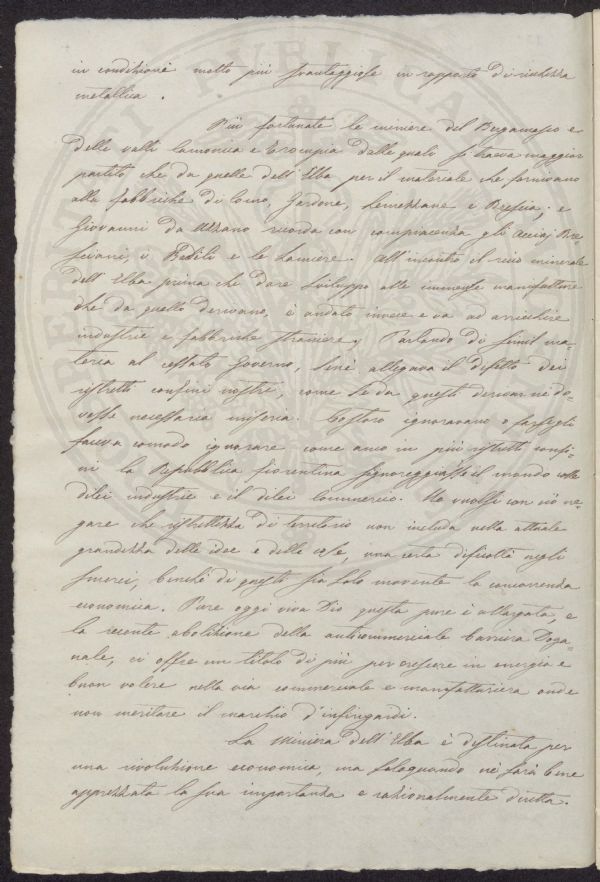 in condizione molto più svantaggiose in rapporto di ricchezza
metallica.
Più fortunate le miniere del Bergamasco e
delle valli Camonica e Trompia dalle quali si traeva maggior
partito che da quelle dell'Elba per il materiale che fornivano
alle fabbriche di Como, Gardone, Lumezzane e Brescia; e
Giovanni da Uzzano ricorda con compiacenza gli Acciaj Bre-
sciani, i Bacili e le Lamiere. All'incontro il ricco minerale
dell'Elba prima che dare sviluppo alle immense manifatture
che da quello derivano, è andato invece e va ad arricchire
industrie e fabbriche straniere. Parlando di simil ma-
teria al cessato Governo, si allegava il difetto dei
ristretti confini nostri, come se da questi derivarne do-
vesse necessaria miseria. Costoro ignoravano o forse gli
faceva comodo ignorare come anco in più ristretti confi-
ni la Repubblica fiorentina signoreggiasse il mondo colle
di lei industrie e il di lei Commercio. Ma vuolsi con ciò ne-
gare che ristrettezza di territorio non includa nella attuale
grandezza delle idee e delle cose, una certa difficoltà negli
smerci, benchè di questi sia solo movente la concorrenza
economica. Pure oggi viva Dio questa pure è allargata, e
la recente abolizione della anticommerciale barriera Doga-
nale, ci offre un titolo di più per crescere in energia e
buon volere nella via commerciale e manifatturiera onde
non meritare il marchio d'infingardi.
La Miniera dell'Elba è destinata per
una rivoluzione economica, ma solo quando ne sarà bene
apprezzata la sua importanza e razionalmente diretta.